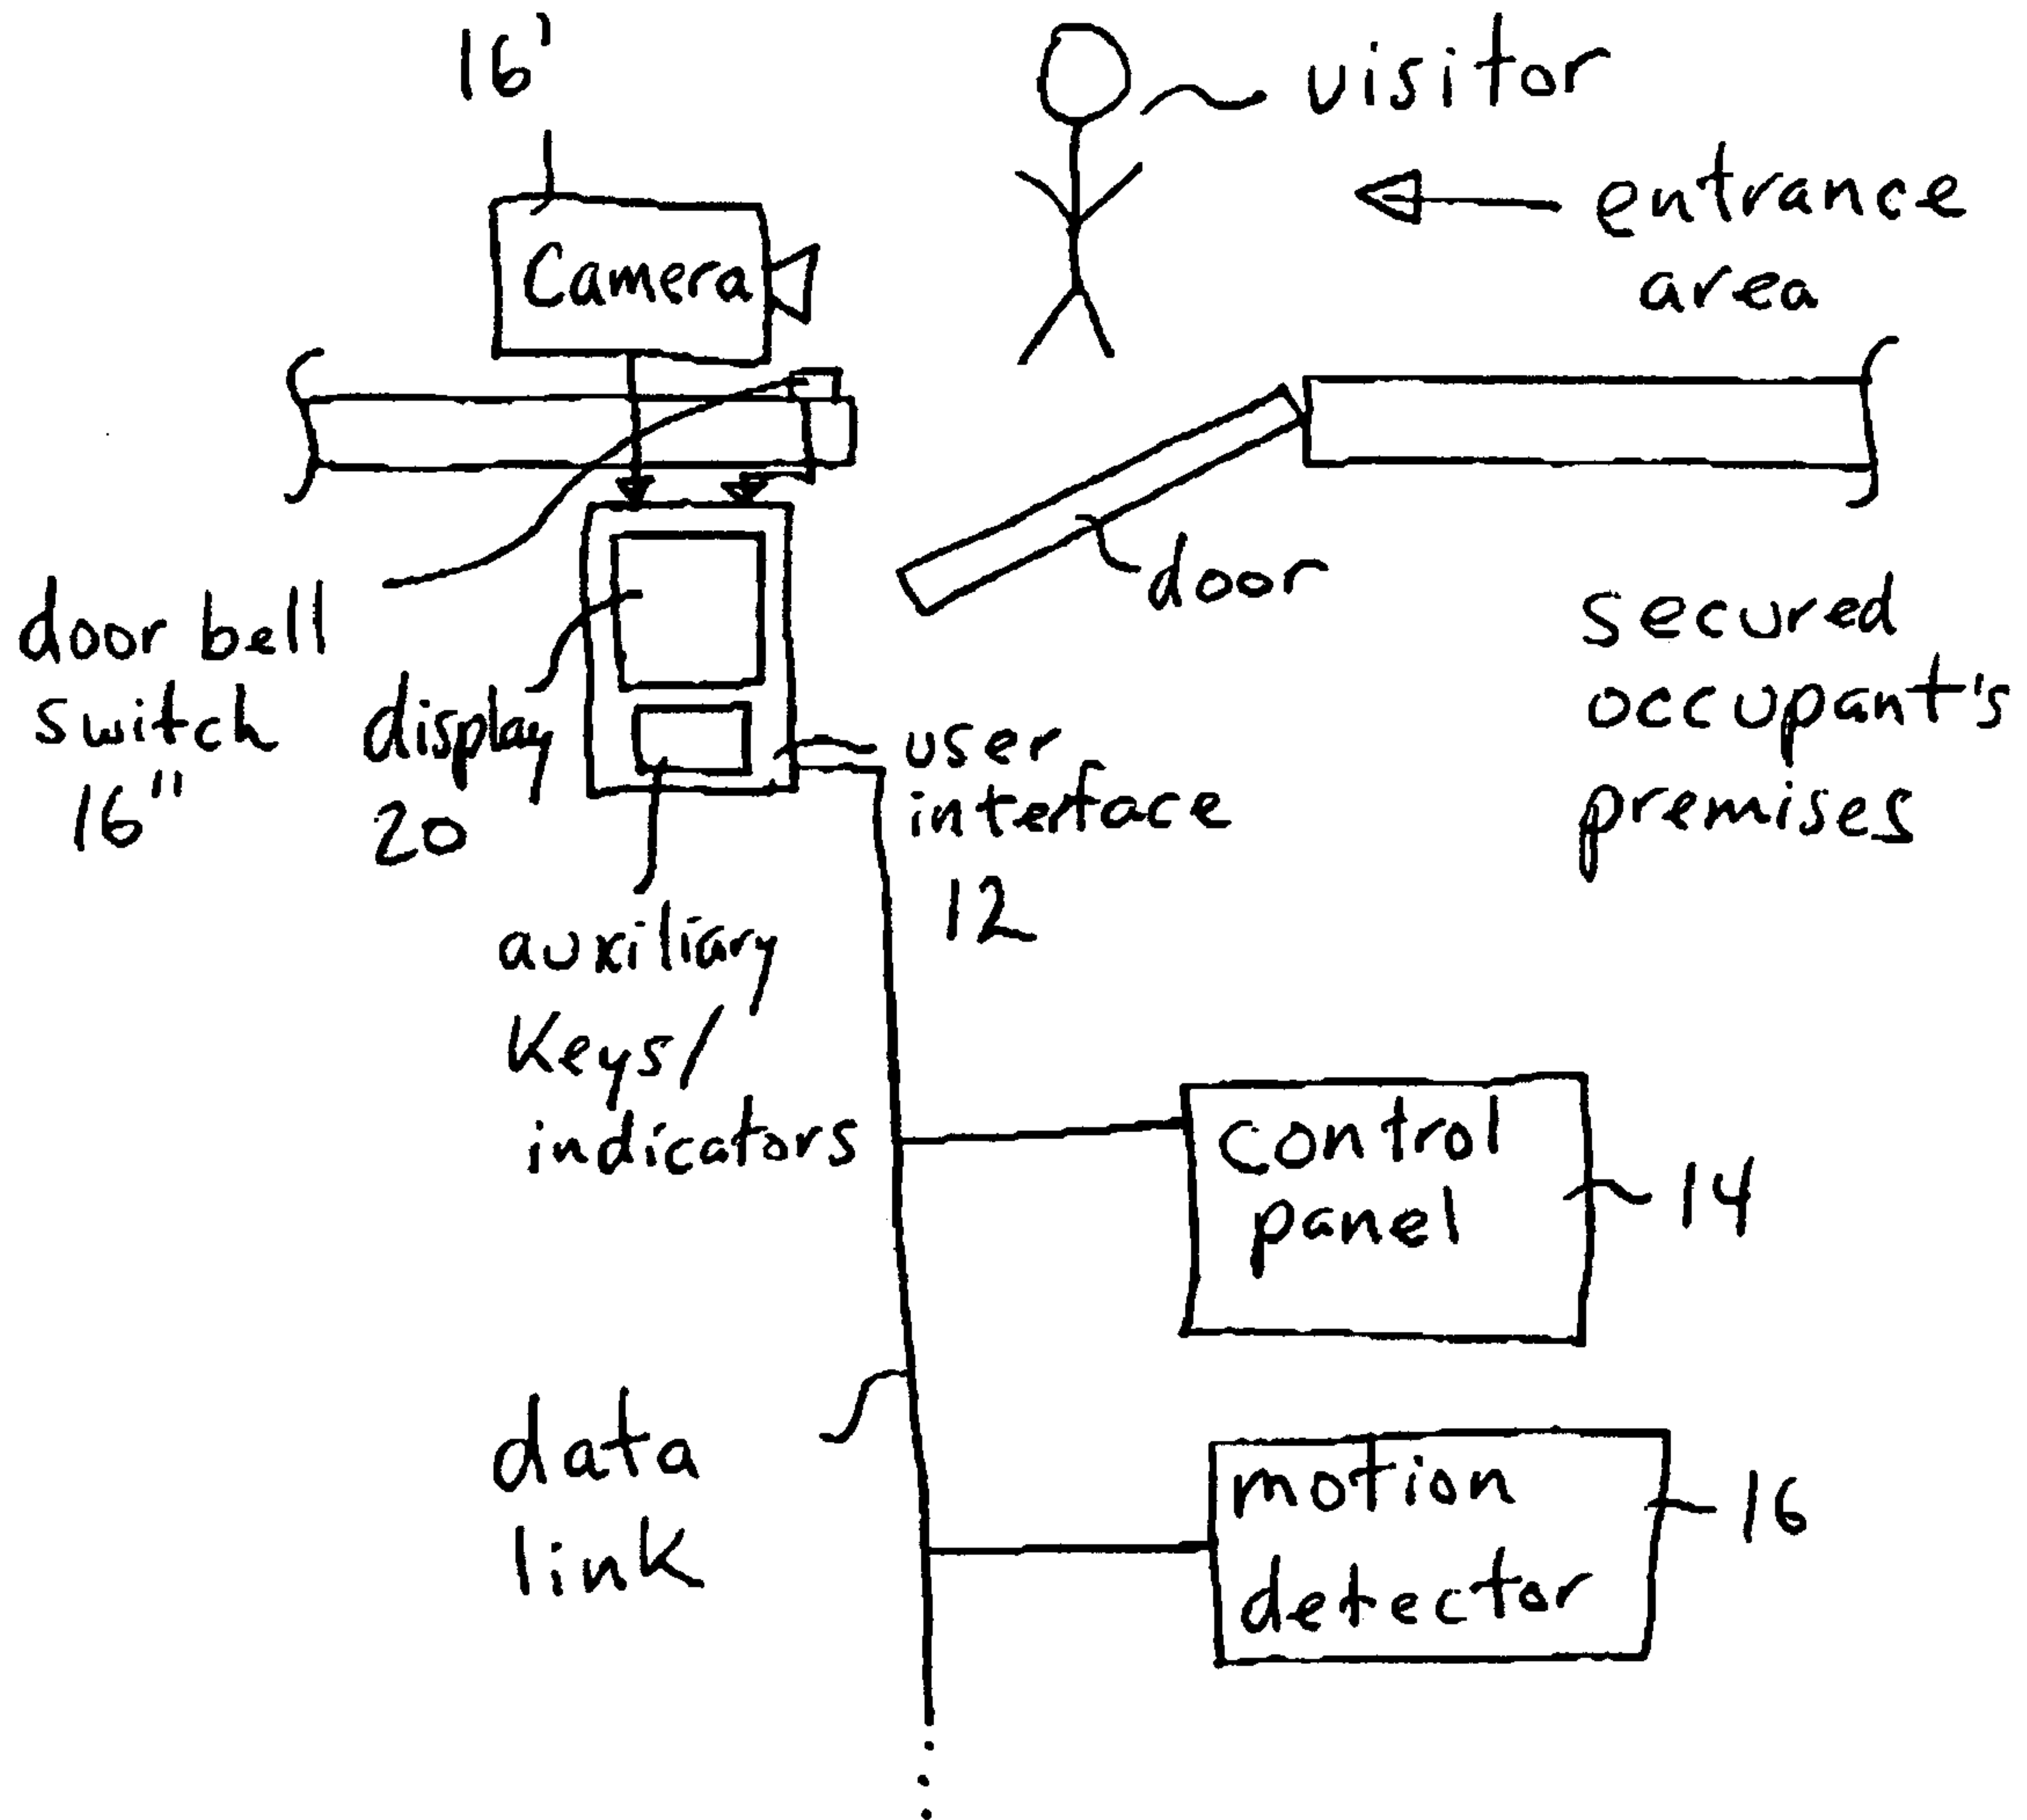 16'
visitor
entrance
area
Camera
door
door bell
switch
16"
display
20
user
interface
12
secured
occupant's
premises
auxiliary
Keys/
indicators
control
panel
14
data
link
motion
detector
16